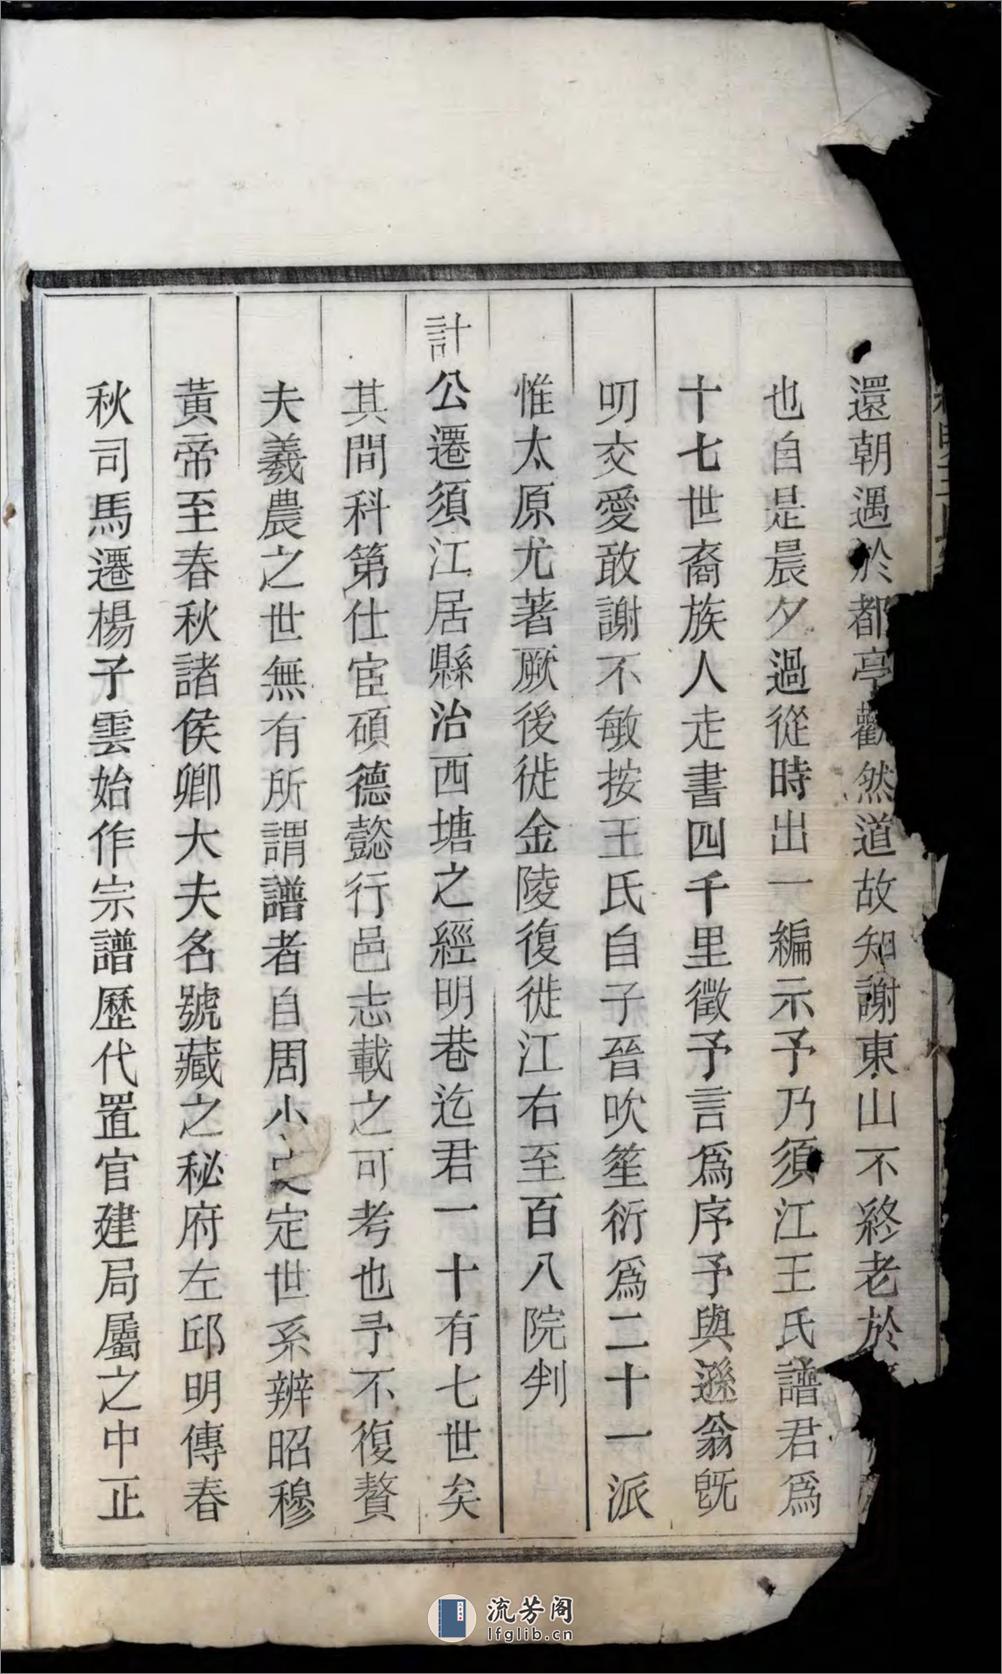 還朝遇於都亭歡然道故知謝東山不終老於
也自是晨夕過從時出一編示予乃須江王氏譜君為
十七世裔族人走書四千里徵予言為序予與遜翁旣
叨交愛敢謝不敏按王氏自子晉吹笙衍為二十一派
惟太原尤著厥後徙金陵復徙江右至百八院判
計公遷須江居縣治西塘之經明巷迄君一十有七世矣
其間科第仕宦碩德懿行邑志載之可考也予不復贅
夫羲農之世無有所謂譜者自周小史定世系辨昭穆
黃帝至春秋諸侯卿大夫名號藏之秘府左邱明傳春
秋司馬遷楊子雲始作宗譜歷代置官建局屬之中正
流芳阁
lfglib.cn